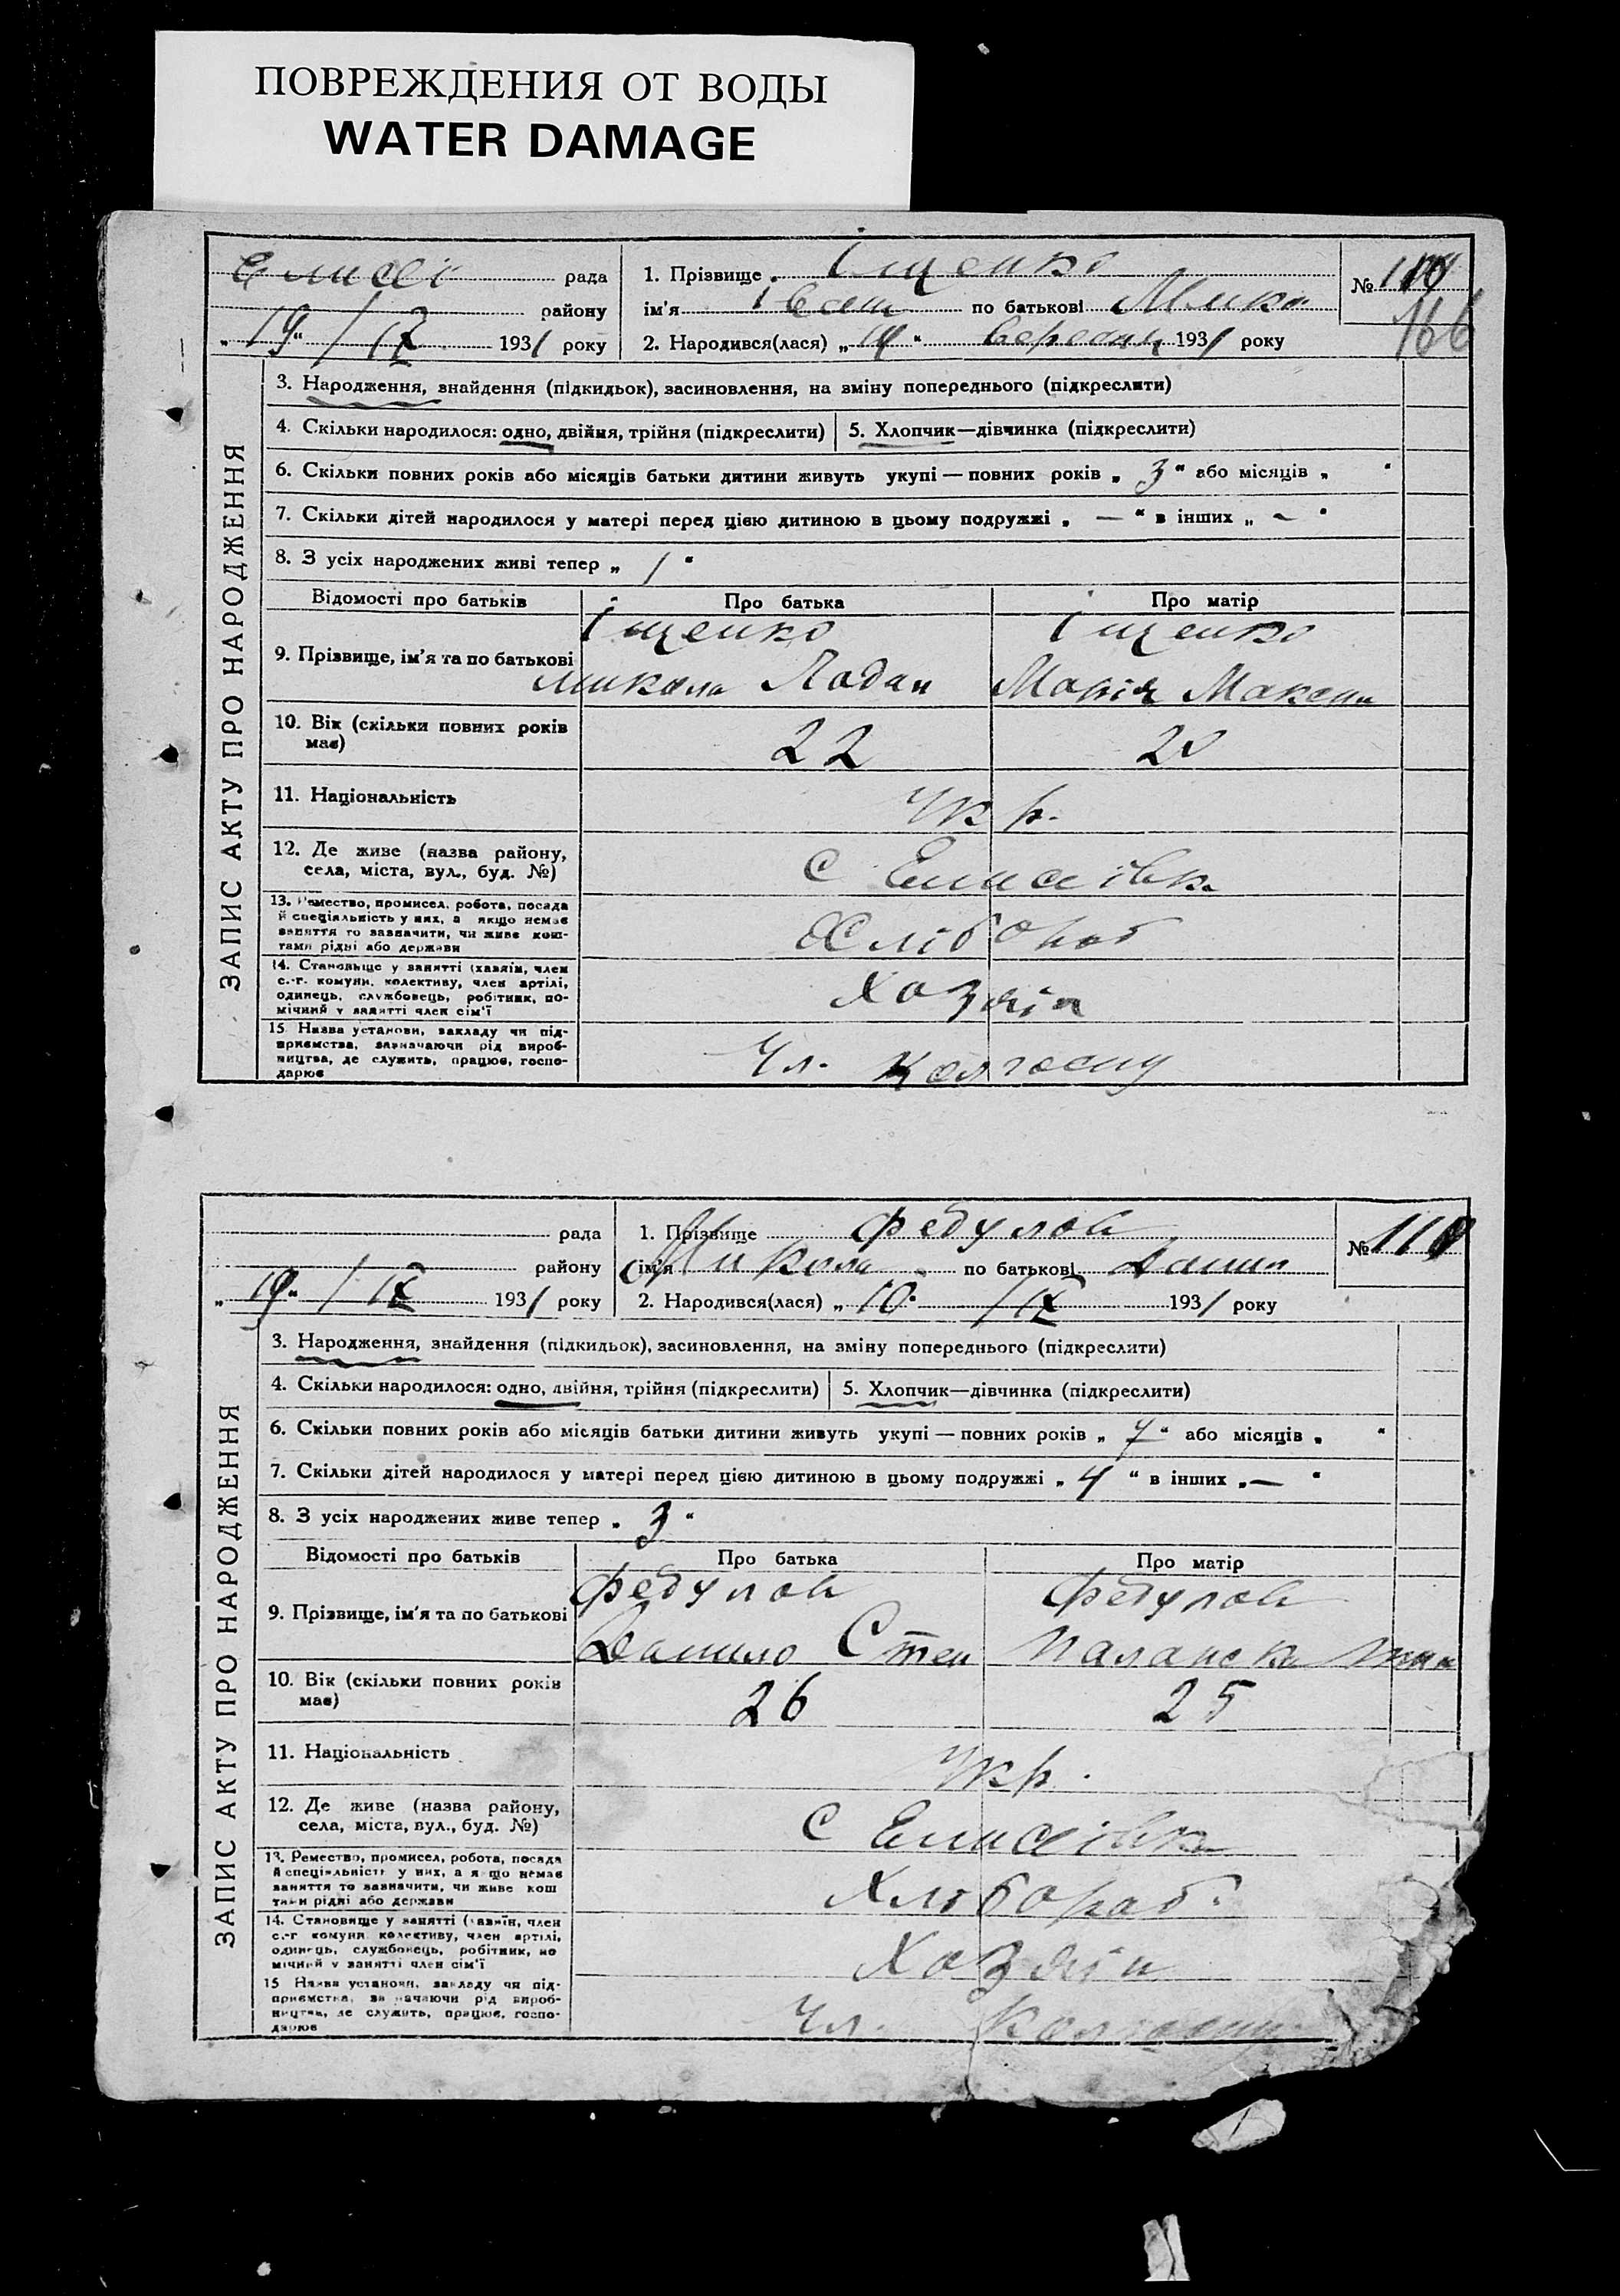 ПОВРЕЖДЕНИЯ ОТ ВОДЫ
WATER DAMAGE
ЗАПИС АКТУ ПРО НАРОДЖЕННЯ
Єлисеї рада
району
„19“ / IX 1931 року
1. Прізвище Іщенко
ім'я Іван по батькові Мико
2. Народився(лася) „ “ вересня 1931 року
№
166
3. Народження, знайдення (підкидьок), засиновлення, на зміну попереднього (підкреслити)
4. Скільки народилося: одно, двійня, трійня (підкреслити) 5. Хлопчик—дівчинка (підкреслити)
6. Скільки повних років або місяців батьки дитини живуть укупі — повних років „ 3 “ або місяців „ “
7. Скільки дітей народилося у матері перед цією дитиною в цьому подружжі „ — “ в інших „ — “
8. З усіх народжених живі тепер „ 1 “
Відомості про батьків Про батька Про матір
9. Прізвище, ім'я та по батькові
Іщенко Іщенко
Микола Марія Максим
10. Вік (скільки повних років має) 22 20
11. Національність Укр.
12. Де живе (назва району, села, міста, вул., буд. №) с Єлисеівка
13. Ремество, промисел, робота, посада
й спеціальність у них, а якщо немає
заняття то зазначити, чи живе кош-
тами рідні або держави
Хлібороб
14. Становище у занятті (хазяїн, член
с.-г. комуни, колективу, член артілі,
одинець, службовець, робітник, по-
мічний у занятті член сім'ї
Хазяїн
15. Назва установи, закладу чи під-
приємства, зазначаючи рід вироб-
ництва, де служить, працює, госпо-
дарює
Чл. Колгоспу
ЗАПИС АКТУ ПРО НАРОДЖЕННЯ
рада
району
„19“ / IX 1931 року
1. Прізвище Федулов
ім'я Микола по батькові Данил
2. Народився(лася) „10“ / IX 1931 року
№
3. Народження, знайдення (підкидьок), засиновлення, на зміну попереднього (підкреслити)
4. Скільки народилося: одно, двійня, трійня (підкреслити) 5. Хлопчик—дівчинка (підкреслити)
6. Скільки повних років або місяців батьки дитини живуть укупі — повних років „ 7 “ або місяців „ “
7. Скільки дітей народилося у матері перед цією дитиною в цьому подружжі „ 4 “ в інших „ — “
8. З усіх народжених живе тепер „ 3 “
Відомості про батьків Про батька Про матір
9. Прізвище, ім'я та по батькові
Федулов Федулов
Данило Степ
10. Вік (скільки повних років має) 26 25
11. Національність Укр.
12. Де живе (назва району, села, міста, вул., буд. №) с Єлисеівка
13. Ремество, промисел, робота, посада
й спеціальність у них, а якщо немає
заняття то зазначити, чи живе кош
тами рідні або держави
Хлібороб.
14. Становище у занятті (хазяїн, член
с.-г комуни колективу, член артілі,
одинець, службовець, робітник, по
мічний у занятті член сім'ї
Хазяїн
15 Назва установи, закладу чи під-
приємства, зазначаючи рід вироб-
ництва, де служить, працює, госпо-
дарює
Чл. Колгоспу